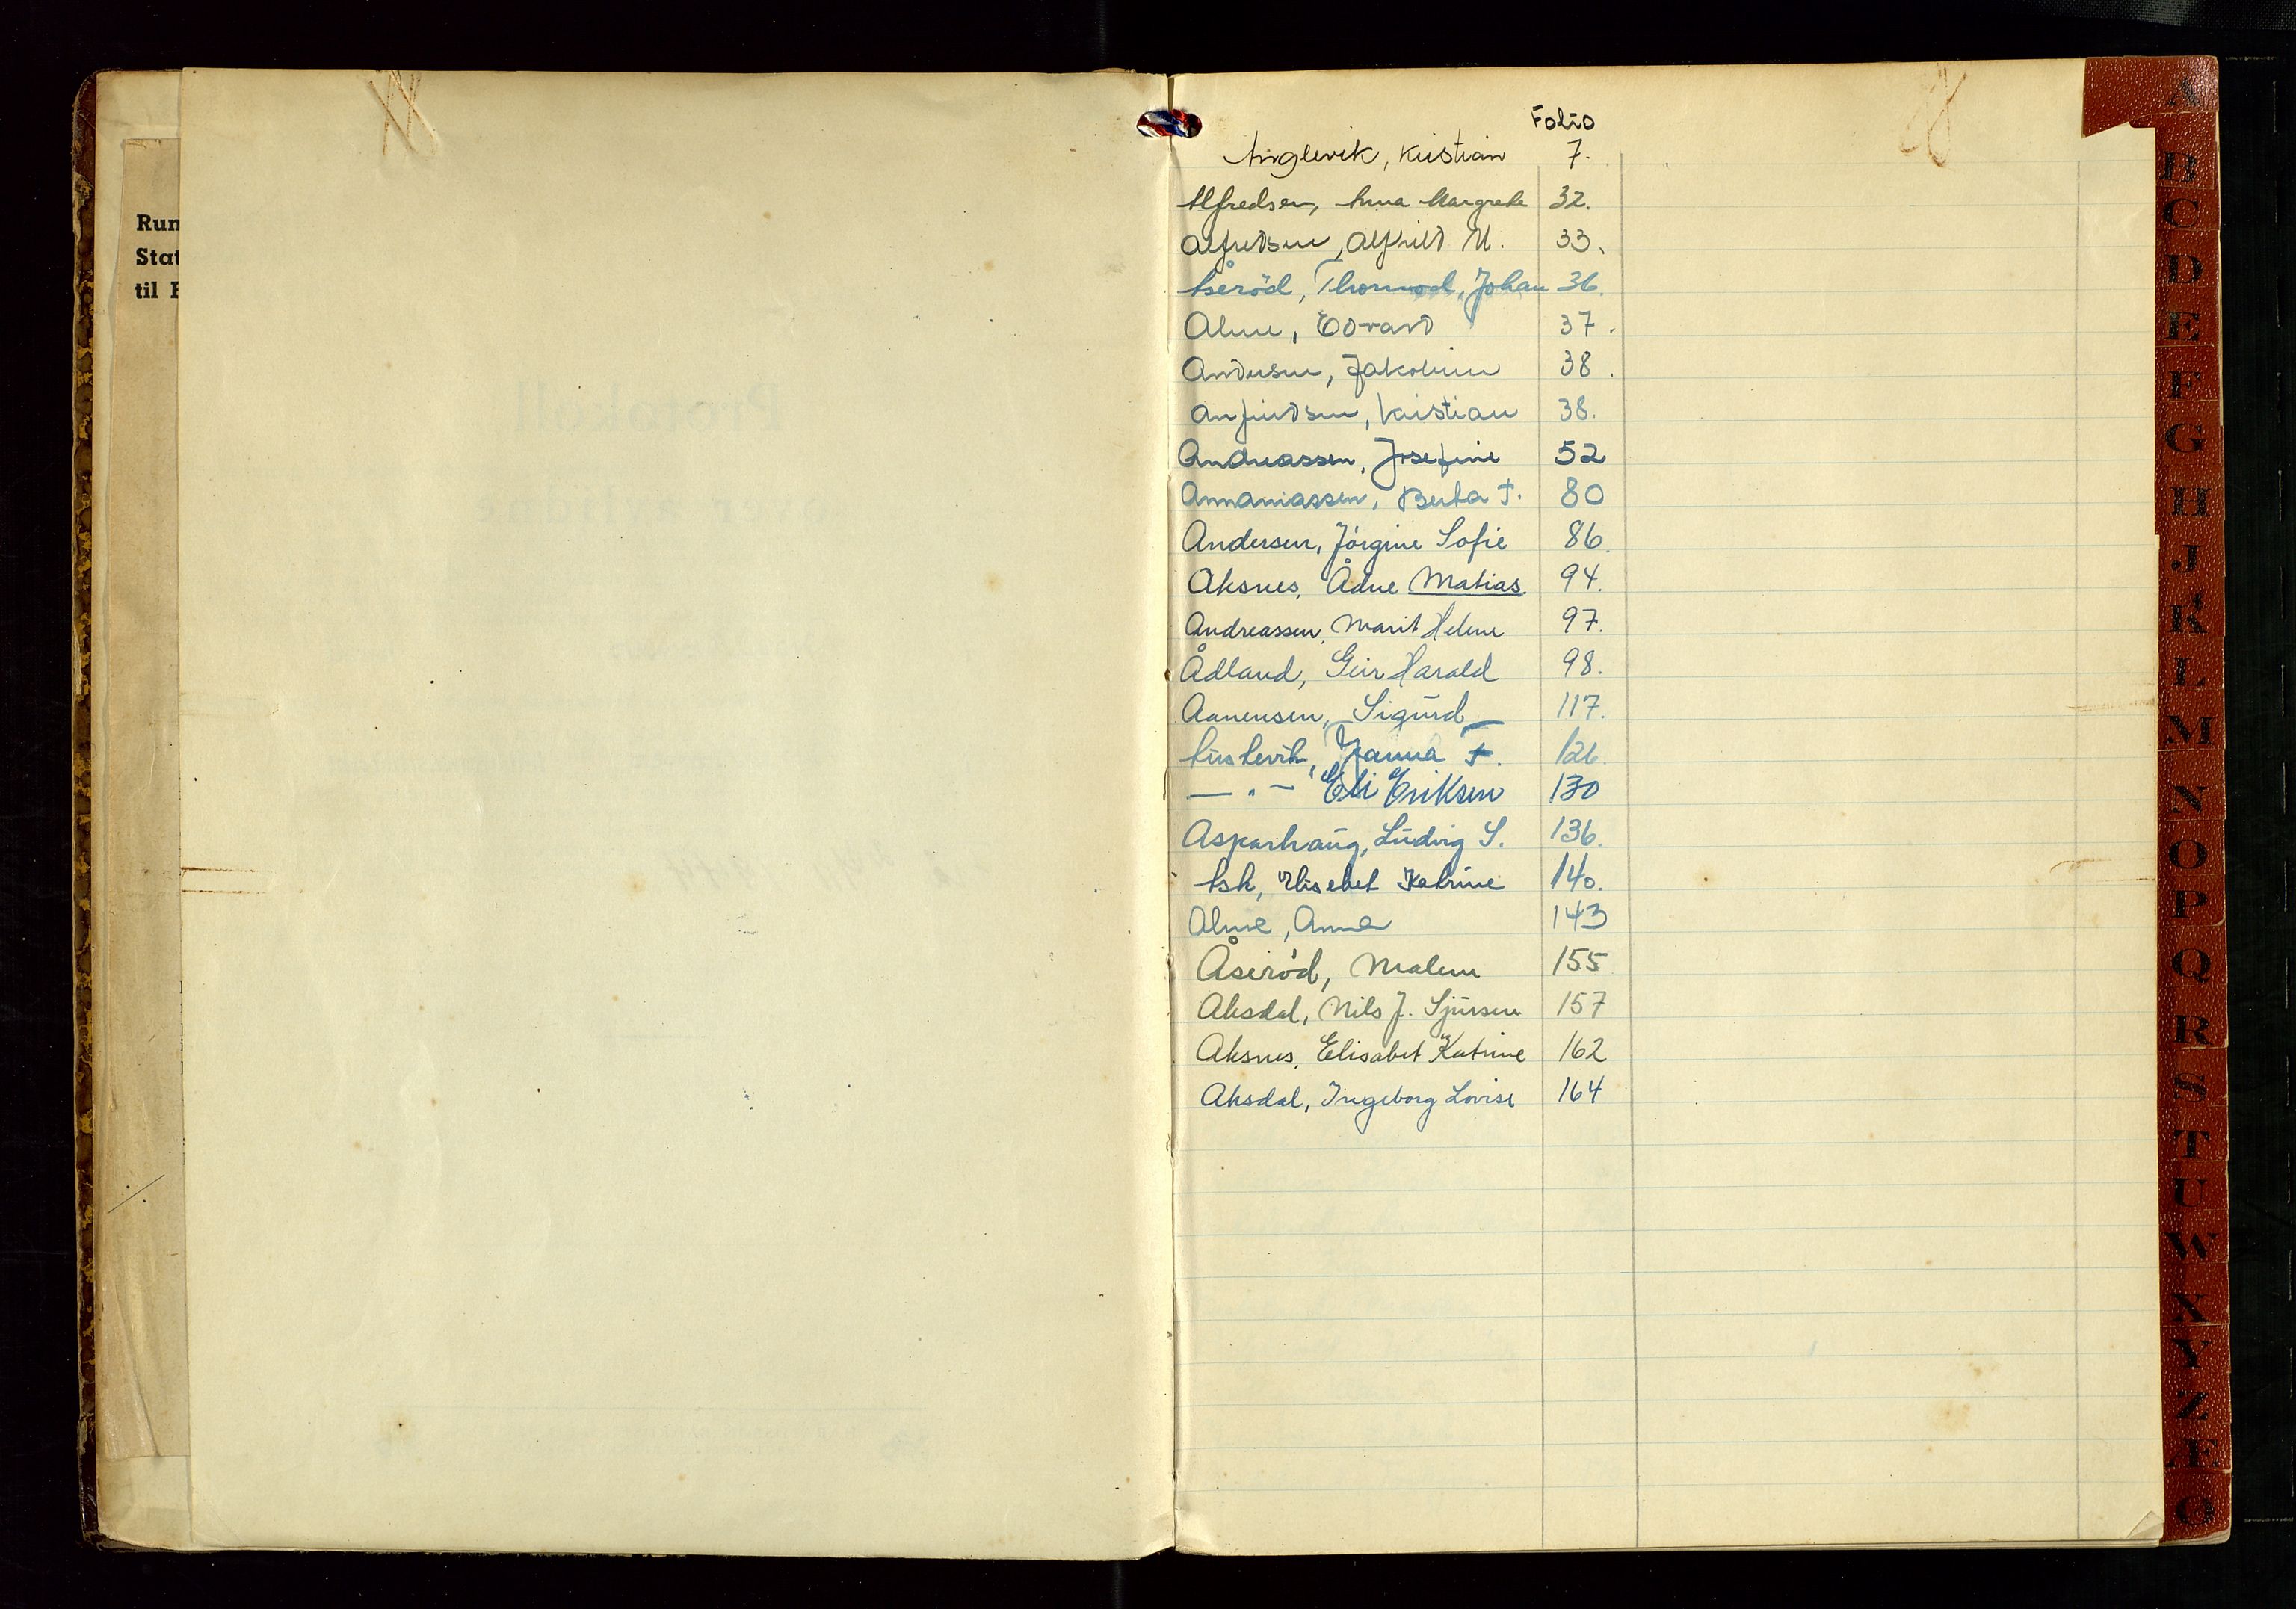 Run
Stat
til
Folio
Anglevik, Kristian 7.
Alfredsen, Anna Margrete 32.
Alfredsen, Alfhild M. 33.
Åseröd, Thormod, Johan 36.
Alme, Edvard 37.
Andersen, Jakobine 38.
Anfindsen, Kristian 38.
Andreassen, Josefine 52
Annaniassen, Berta T. 80
Andersen, Jörgine Sofie 86.
Aksnes, Ådne Matias. 94.
Andreassen, Marit Helene 97.
Ådland, Geir Harald 98.
Aanensen, Sigurd 117.
Janna F. 126.
— " — Eli Eriksen 130
Asparhaug, Ludvig S. 136.
Ask, Elisebet Katrine 140.
Alme, Anna 143
Åseröd, Malene 155
Aksdal, Nils J. Sjursen 157
Aksnes, Elisabet Katrine 162
Aksdal, Ingeborg Lovise 164
A
B
C
D
E
F
G
H
J
K
L
M
N
O
P
Q
R
S
T
U
W
X
Y
Z
Æ
Ø